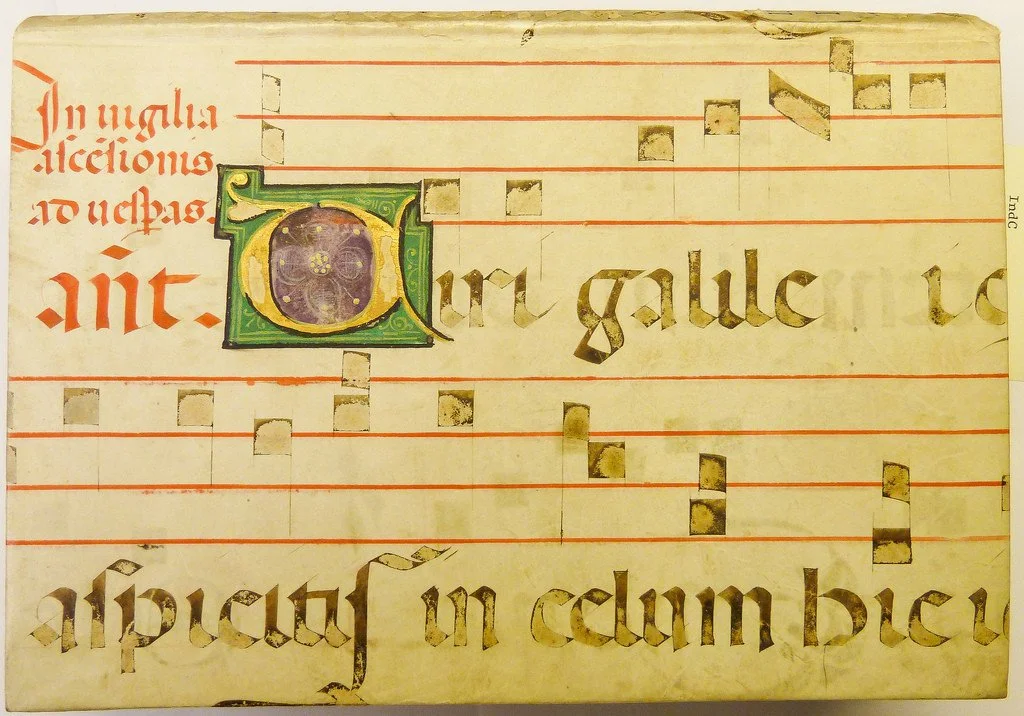 In uigilia
aſcēſionis
ad ueſꝑas.
an̄t. Uiri galile i
aſpicitis in celum hic i
IndC